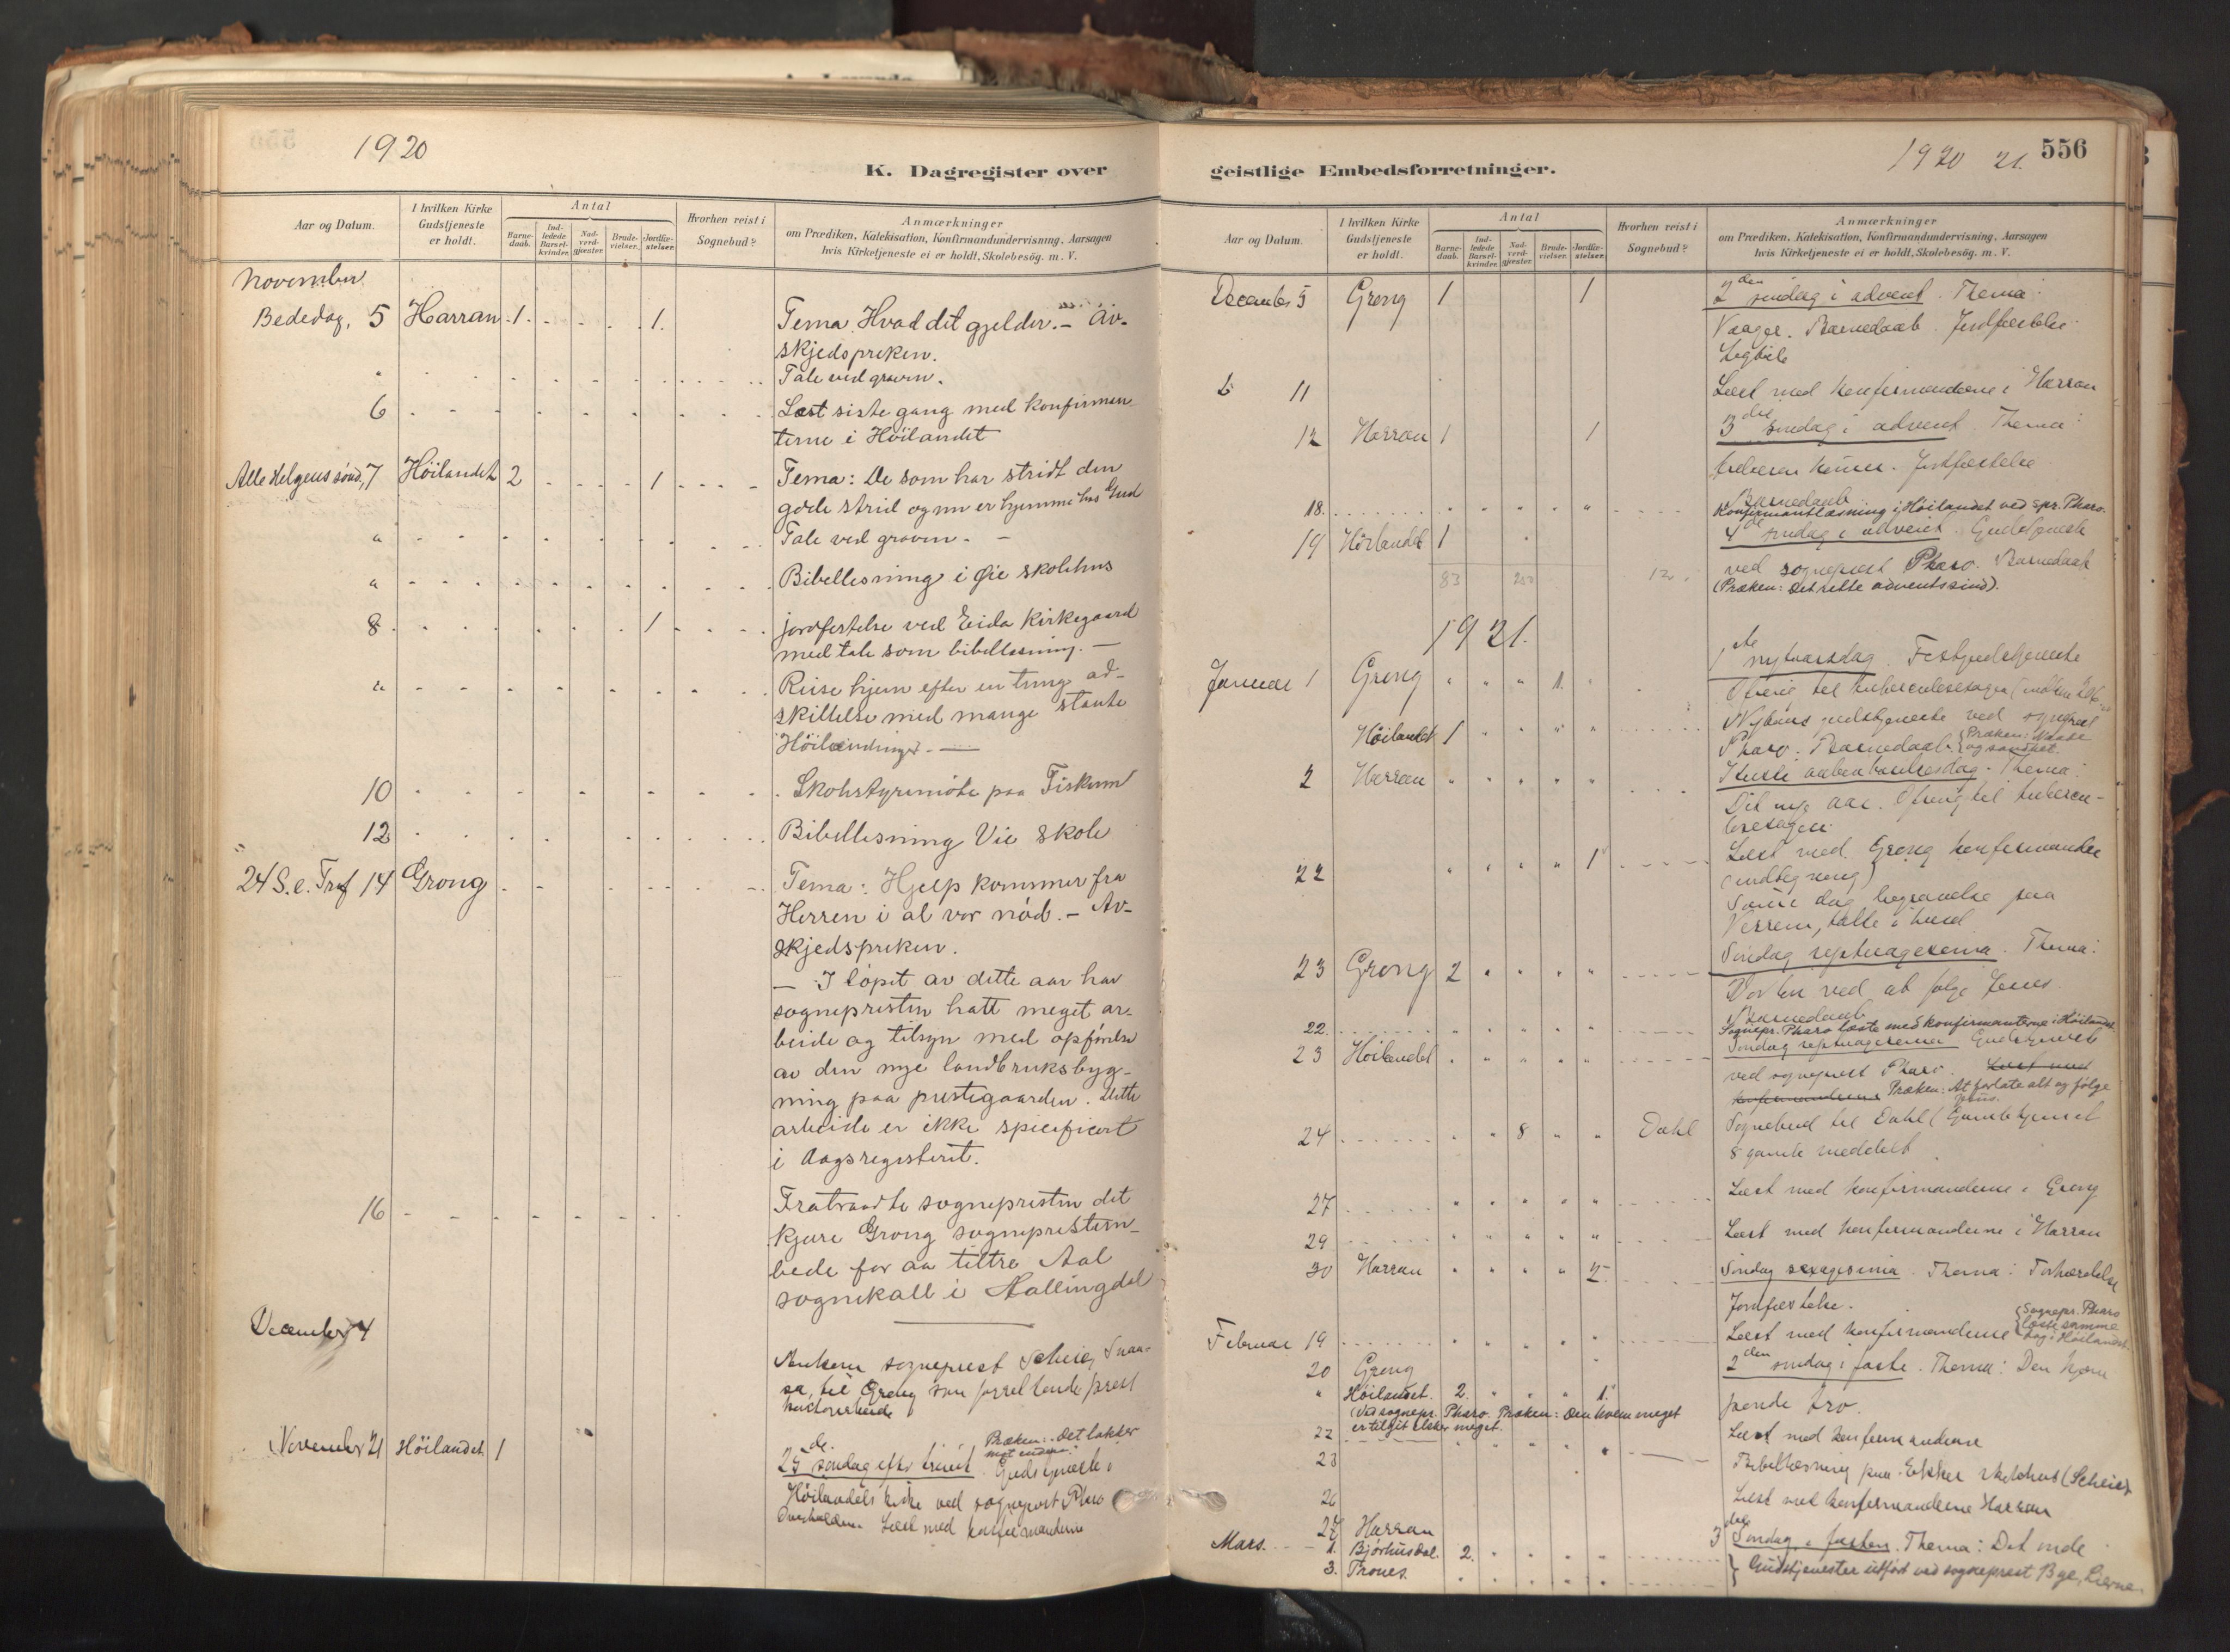 1920
K. Dagregister over
Aar og Datum.
I hvilken Kirke Gudstjeneste er holdt.
Antal
Barne-daab.
Ind-ledede Barsel-kvinder.
Nad-verd-gjæster.
Brude-vielser.
Jordfæ-stelser.
Hvorhen reist i Sognebud?
Anmærkninger
om Prædiken, Katekisation, Konfirmandundervisning, Aarsagen
hvis Kirketjeneste ei er holdt, Skolebesög. m. V.
November
Bededag, 5 Harran 1 1. Tema. Hvad det gjelder. - Av-
skjedspreken.
" Tale ved graven.
6 Læst siste gang med konfirman-
terne i Höilandet
Alle Helgens sönd, 7 Höilandet 2 1 Tema: De som har stridt den
gode strid og nu er hjemme hos Gud
" Tale ved graven -
" Bibellesning i Øie skolehus
8 1 jordfestelse ved Eida Kirkegaard
med tale som bibellesning. -
" Reise hjem efter en tung ad-
skillelse med mange staute
Höilændinger. -
10 Skolestyremöte paa Fiskum
12 Bibellesning Vie skole
24 S. e. Tref 14 Grong Tema: Hjelp kommer fra
Herren i al vor nöd. - Av-
skjedspreken.
- I löpet av dette aar har
sognepresten hatt meget ar-
beide og tilsyn med opförelse
av den nye landbruksbyg-
ning paa prestegaarden. Dette
arbeide er ikke specificert
i dagsregisteret.
16 Fratraadte sognepresten det
kjære Grong sogneprestem-
bede for aa tiltre Aal
sognekall i Hallingdal
December 4
sogneprest Scheie, Snaa-
sa, til Grong som
November 21 Höilandet 1 25de söndag efter trinit. Præken: Det lakker
mot enden. Gudstjeneste i
Höilandets kirke ved sogneprest Pharo
Overhallen. Læst med konfirmanderne
geistlige Embedsforretninger.
1920 21.
556
Aar og Datum.
I hvilken Kirke Gudstjeneste er holdt.
Antal
Barne-daab.
Ind-ledede Barsel-kvinder.
Nad-verd-gjæster.
Brude-vielser.
Jordfæ-stelser.
Hvorhen reist i Sognebud?
Anmærkninger
om Prædiken, Katekisation, Konfirmandundervisning, Aarsagen
hvis Kirketjeneste ei er holdt, Skolebesög. m. V.
December 5 Grong 1 1 2den söndag i advent. Thema:
Vaager. Barnedaab. Jordfæstelse
11 Læst med konfirmanderne i Harran
12 Harran 1 1 3die söndag i advent. Thema:
Jordfæstelse
Barnedaab
18. Konfirmantlæsning i Höilandet ved spr. Pharo.
19 Höilandet 1 4de söndag i advent. Gudstjeneste
83 250 12 ved sogneprest Pharo. Barnedaab
(Præken: Det rette adventssind).
1921.
Januar 1 Grong 1. 1ste nytaarsdag. Festgudstjeneste
Höilandet 1 Nytaars gudstjeneste ved sogneprest
Pharo. Barnedaab. {Præken: Naade og sandhet.
2 Harran Thema:
Dit nye aar. Ofring til tuberku-
losesagen.
22 1 Læst med Grong konfirmander
(indtegning)
Samme dag begravelse paa
23 Grong 2 Söndag septuagesima. Thema:
ved at følge Jesus.
Barnedaab
22. Sognepr. Pharo læste med konfirmanterne i Höilandet.
23 Höilandet Söndag septuagesima Gudstjeneste
ved sogneprest Pharo. Læst med
konfirmanderne Præken: At forlate alt og følge
Jesus.
24 8 Dahl Sognebud til Dahl
8 gamle meddelt
27 Læst med konfirmanderne i Grong
29 Læst med konfirmanderne i Harran
30 Harran 2 Söndag sexagesima. Thema: Forhærdelse
Jordfæstelse.
Februar 19 Læst med konfirmanderne {Sognepr. Pharo
læste samme
dag i Höilandet.
20 Grong 2den söndag i faste. Thema: Den kjæm-
pende tro.
" Höilandet. 2. 1.
(Ved sognepr. Pharo. Præken: Den hvem meget
er tilgit elsker meget.
22 Læst med konfirmanderne
23 Bibellæsning paa Ekker skolehus (Scheie)
26 Læst med konfirmanderne Harran
27 Harran 3die Söndag i fasten. Thema: Det onde
Mars. 1. Bjørhusdal. 2. } Gudstjenester utført ved sogneprest Bye, Lierne.
3. Trones.